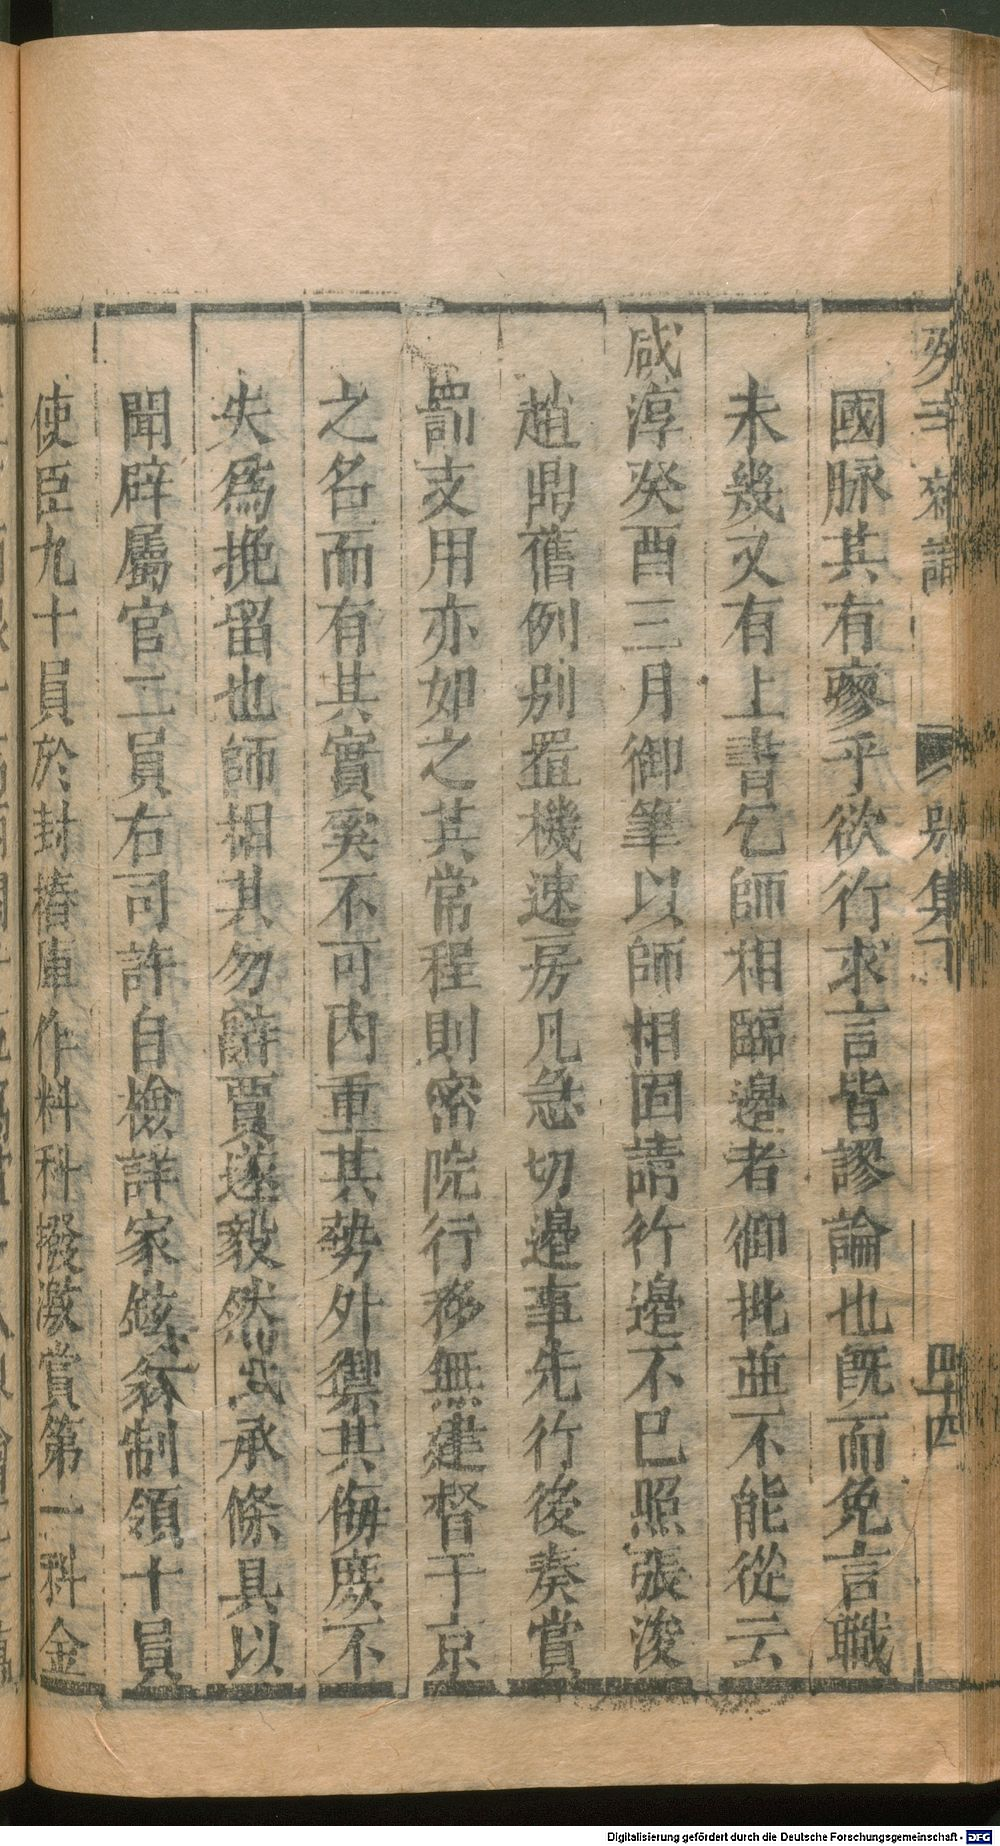 癸辛雜識 別集下 四十四
國脉其有瘳乎欲行求言皆謬論也旣而免言職
未幾又有上書乞師相臨邊者御批並不能從云
咸淳癸酉三月御筆以師相固請行邊不巳照張浚
趙鼎舊例別置機速房凡急切邊事先行後奏賞
罰支用亦如之其常程則密院行移無建督于京
之名而有其實奚不可內重其勢外禦其侮庶不
失爲挽留也師相其勿辭賈遂毅然 承條具以
聞辟屬官二員右司許自檢詳家鉉 制領十員
使臣九十員於封樁庫作料科撥激賞第一科金
Digitalisierung gefördert durch die Deutsche Forschungsgemeinschaft - DFG